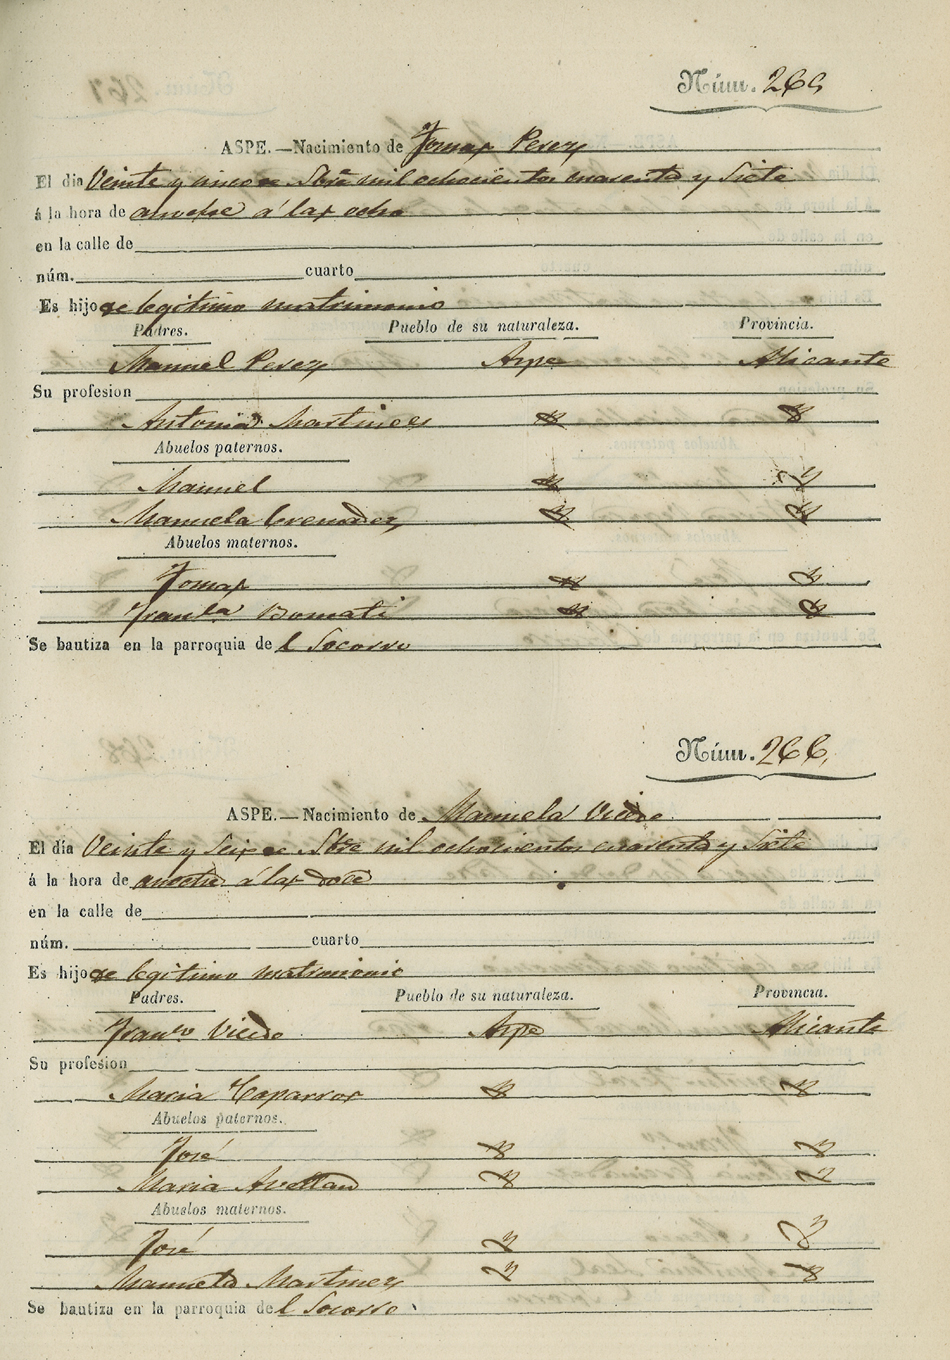 Núm. 265
ASPE.—Nacimiento de Tomas Perez
El dia Veinte y cinco de Sbre mil ochocientos cuarenta y Siete
á la hora de anoche á las ocho
en la calle de
núm. cuarto
Es hijo de legitimo matrimonio
Padres. Pueblo de su naturaleza. Provincia.
Manuel Perez Aspe Alicante
Su profesion
Antonia Martines
Abuelos paternos.
Manuel
Manuela Cremades
Abuelos maternos.
Tomas
Fran.ca Bomati
Se bautiza en la parroquia del Socorro
Núm. 266
ASPE.—Nacimiento de Manuela Vicedo
El día Veinte y Seis de Sbre mil ochocientos cuarenta y Siete
á la hora de anoche á las doce
en la calle de
núm. cuarto
Es hijo de legitimo matrimonio
Padres. Pueblo de su naturaleza. Provincia.
Franco Vicedo Aspe Alicante
Su profesion
Maria Caparros
Abuelos paternos.
José
Maria Avellan
Abuelos maternos.
José
Manuela Martinez
Se bautiza en la parroquia del Socorro